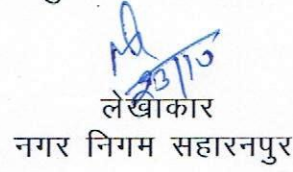 23/10
लेखाकार
नगर निगम सहारनपुर